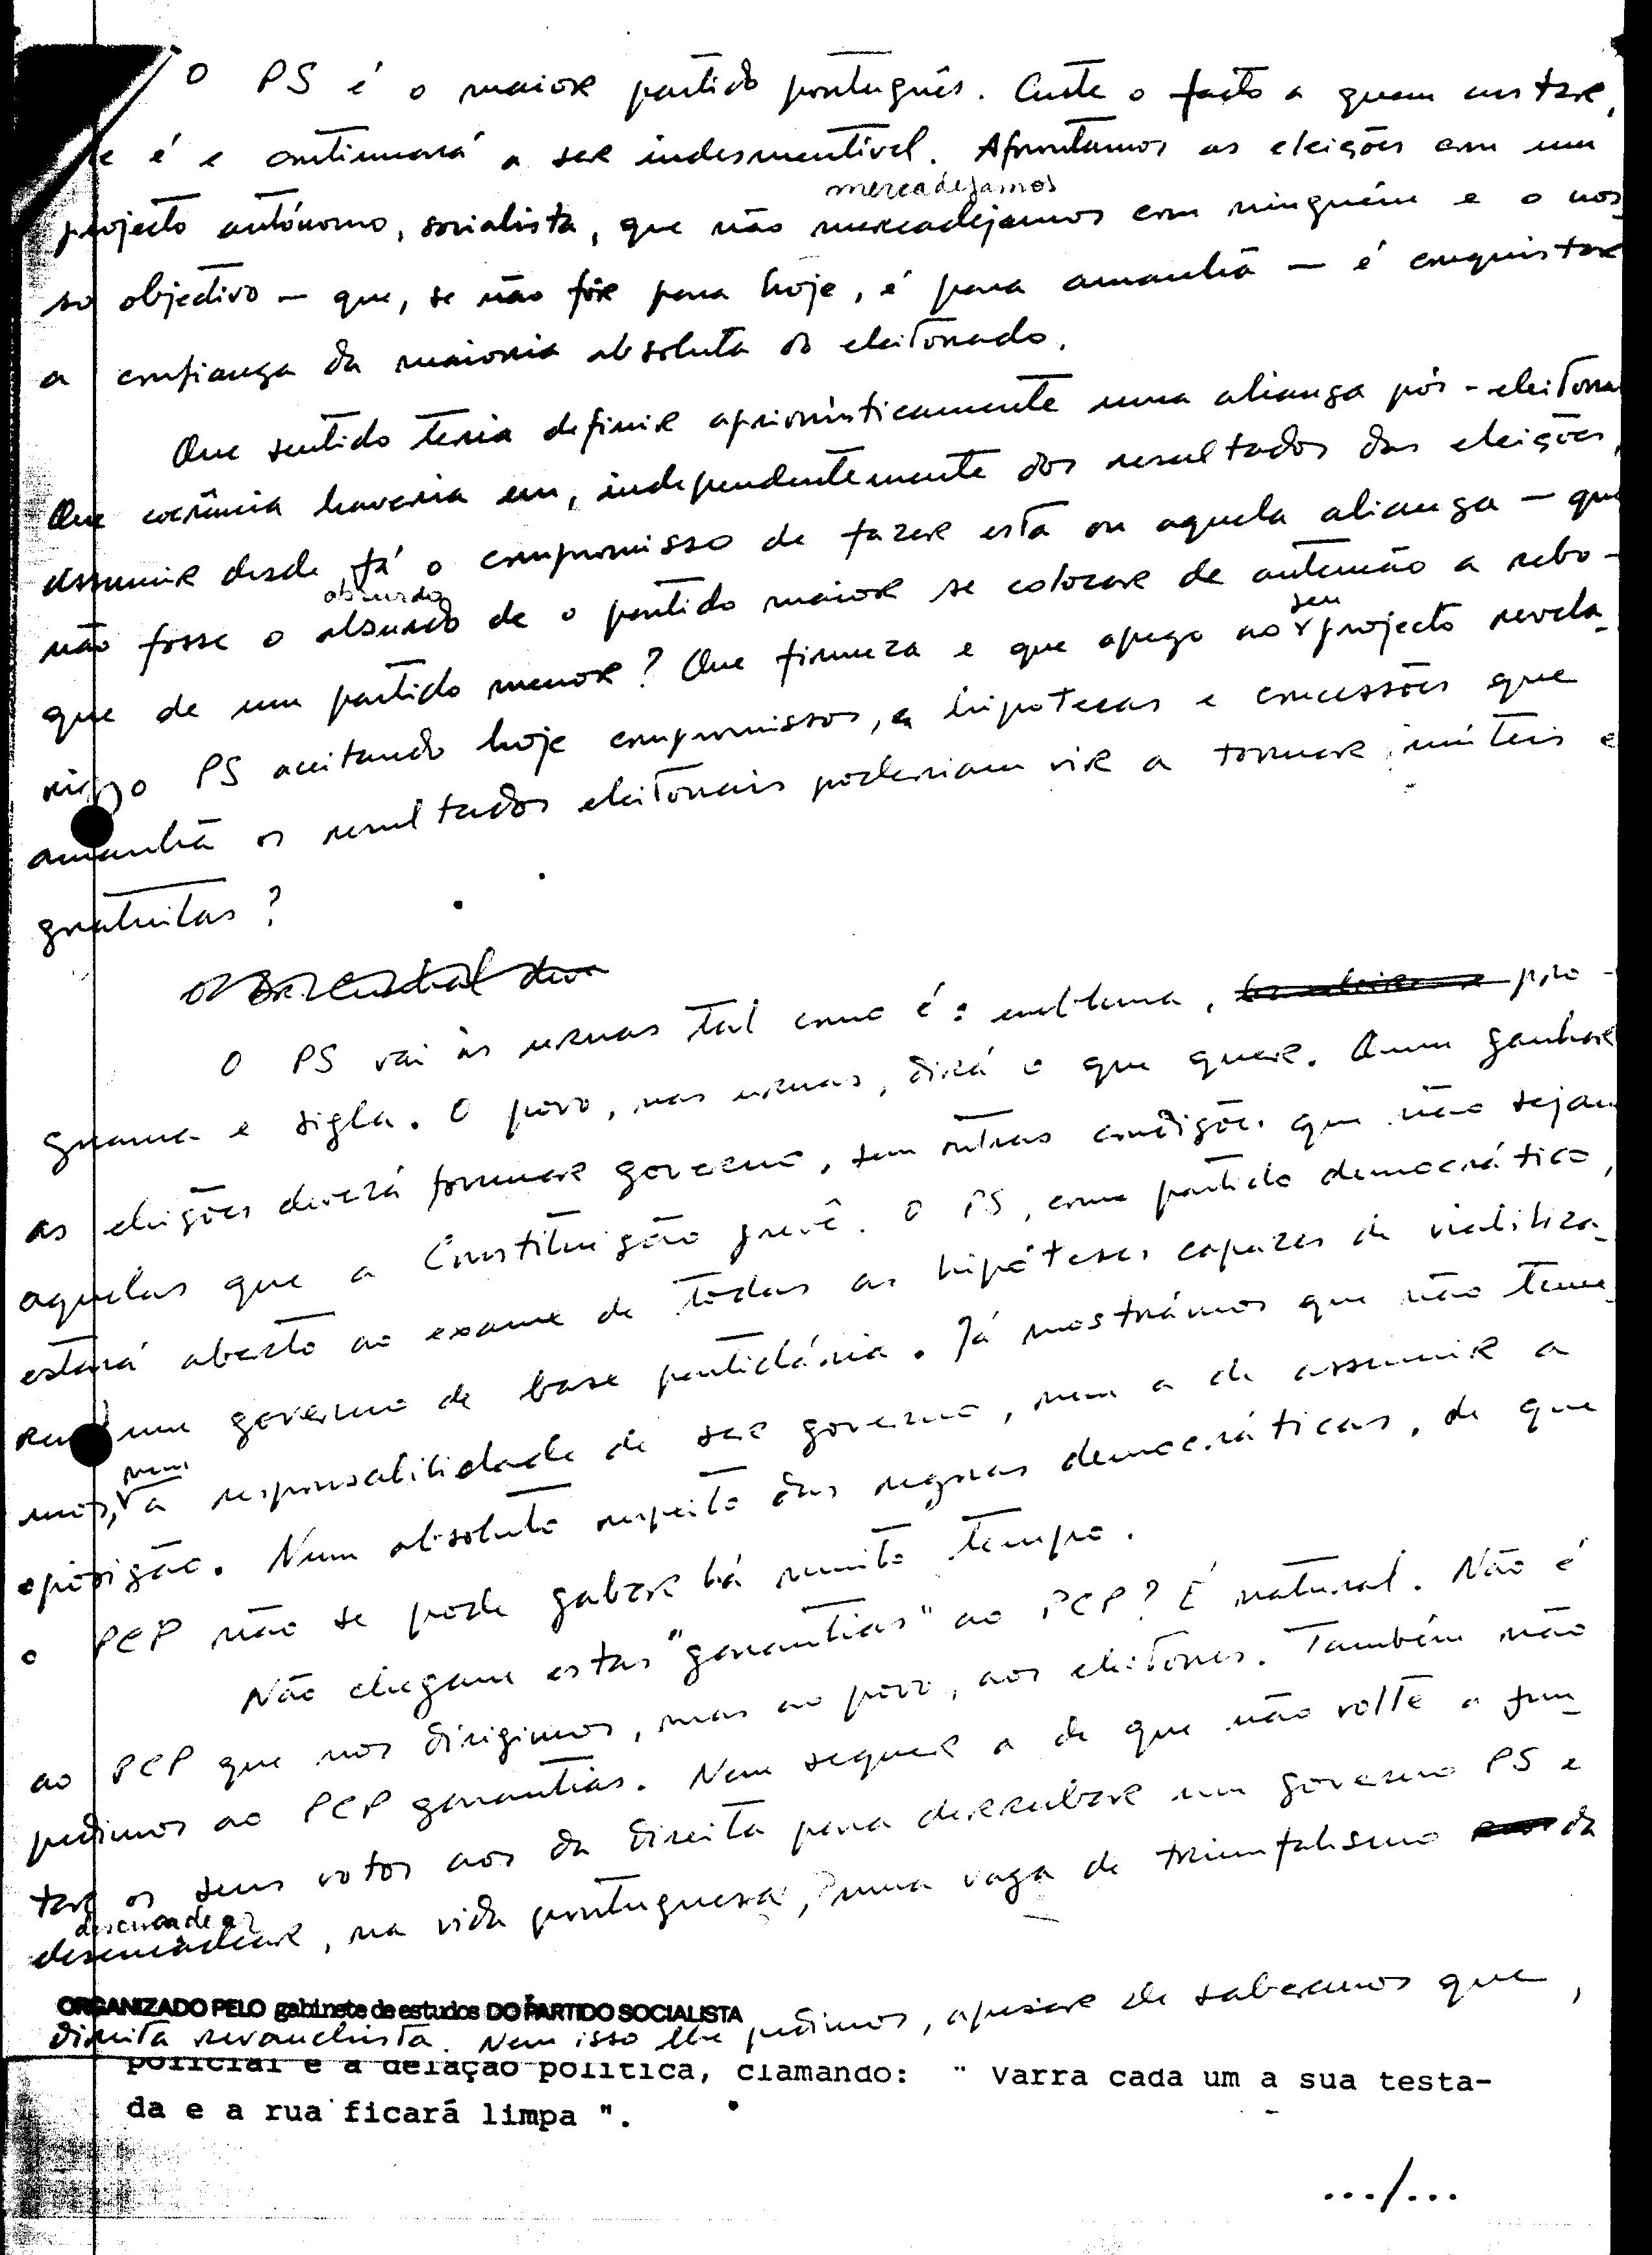 O PS é o maior partido português. Custe o facto a quem custar,
e é e continuará a ser indesmentível. Afrontamos as eleições com um
mercadejamos
projecto autónomo, socialista, que não mercadejamos com ninguém e o nos
so objectivo – que, se não fôr para hoje, é para amanhã – é conquistar
a confiança da maioria absoluta do eleitorado.
Que sentido teria definir aprioristicamente uma aliança pós-eleitoral
Que coerência haveria em, independentemente dos resultados das eleições,
assumir desde já o compromisso de fazer esta ou aquela aliança – que
absurdo seu
não fosse o absurdo de o partido maior se colocar de antemão a rebo-
que de um partido menor? Que firmeza e que apego ao projecto revela-
ria o PS aceitando hoje compromissos, hipotecas e concessões que
amanhã os resultados eleitorais poderiam vir a tornar inúteis e
gratuitas?
O PS vai às urnas tal como é: emblema, pro-
grama e sigla. O povo, nas urnas, dirá o que quer. Quem ganhar
as eleições deverá formar governo, sem outras condições que não sejam
aquelas que a Constituição prevê. O PS, como partido democrático,
estará aberto ao exame de todas as hipóteses capazes de viabiliza-
rem um governo de base partidária. Já mostrámos que não teme-
nem
mos, a responsabilidade de ser governo, nem a de assumir a
oposição. Num absoluto respeito das regras democráticas, de que
o PCP não se pode gabar há muito tempo.
Não chegam estas "garantias" ao PCP? É natural. Não é
ao PCP que nos dirigimos, mas ao povo, aos eleitores. Também não
pedimos ao PCP garantias. Nem sequer a de que não volte a jun-
tar os seus votos aos da direita para derrubar um governo PS e
desencadear
desencadear, na vida portuguesa, uma vaga de triunfalismo da
ORGANIZADO PELO gabinete de estudos DO PARTIDO SOCIALISTA
direita revanchista. Nem isso lhe pedimos, apesar de sabermos que,
policial e a delação política, clamando: " Varra cada um a sua testa-
da e a rua ficará limpa ".
.../...